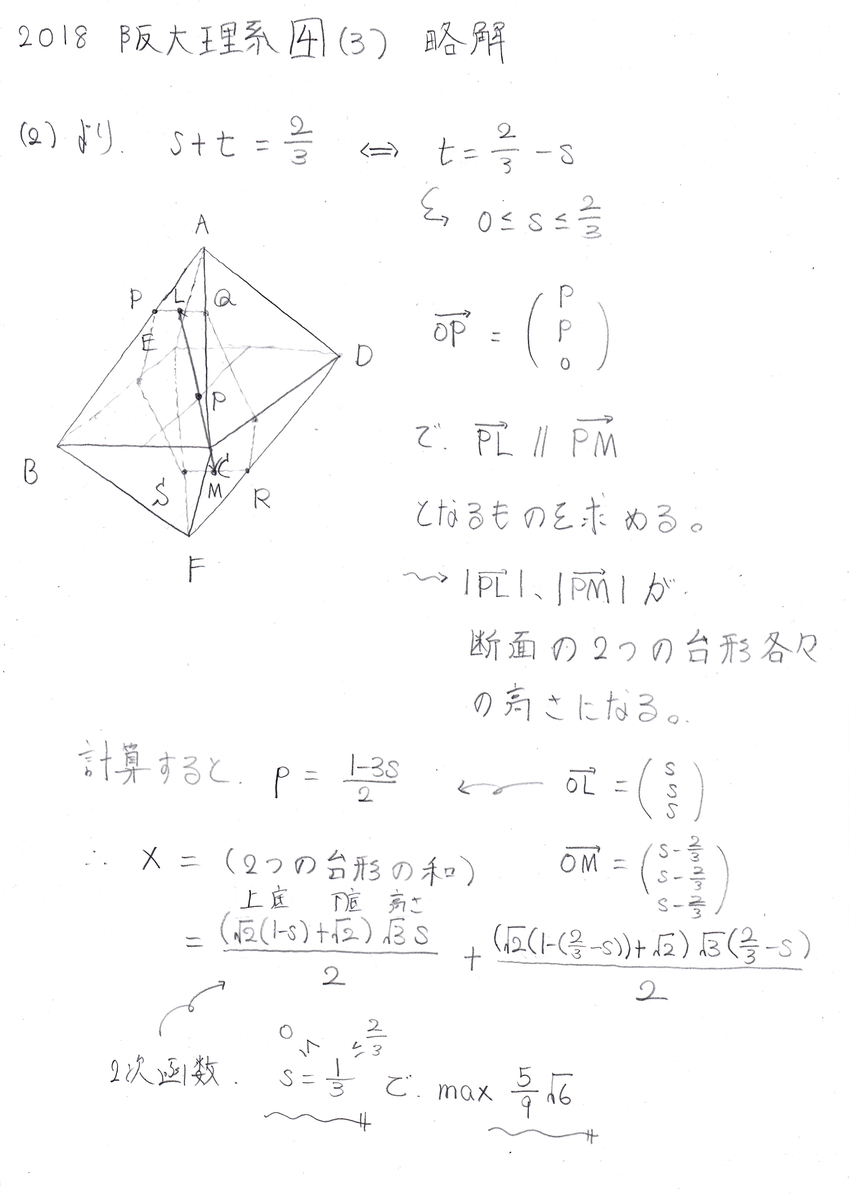 2018 阪大理系 4 (3) 略解
(2) より. s+t = 2/3 ⇔ t = 2/3 - s
0 ≤ s ≤ 2/3
A
P L Q
E
D
P
B
C
S M R
F
→OP = (p p 0)
で. →PL // →PM
となるものを求める。
〜→ |→PL|、|→PM| が.
断面の2つの台形各々
の高さになる。
計算すると. p = (1-3s)/2 ← →OL = (s s s)
∴ X = (2つの台形の和) →OM = (s-2/3 s-2/3 s-2/3)
上底 下底 高さ
= (√2(1-s)+√2)√3 s / 2 + (√2(1-(2/3-s))+√2)√3(2/3-s) / 2
0 ≤ ≤ 2/3
2次函数. s = 1/3 で. max 5/9 √6